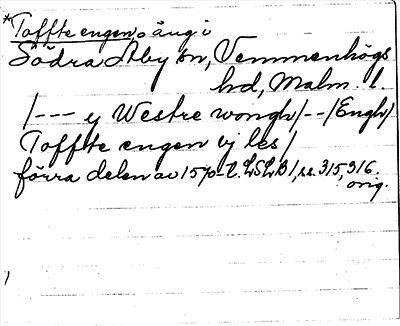 *Toffte engen, äng i
Södra Åby sn, Vemmenhögs
hd, Malm. l.
/--- y Westre wongh/--/Engh/
Toffte engen vj les/
förra delen av 1570-t. LSLB 1, ss. 315, 316.
orig.